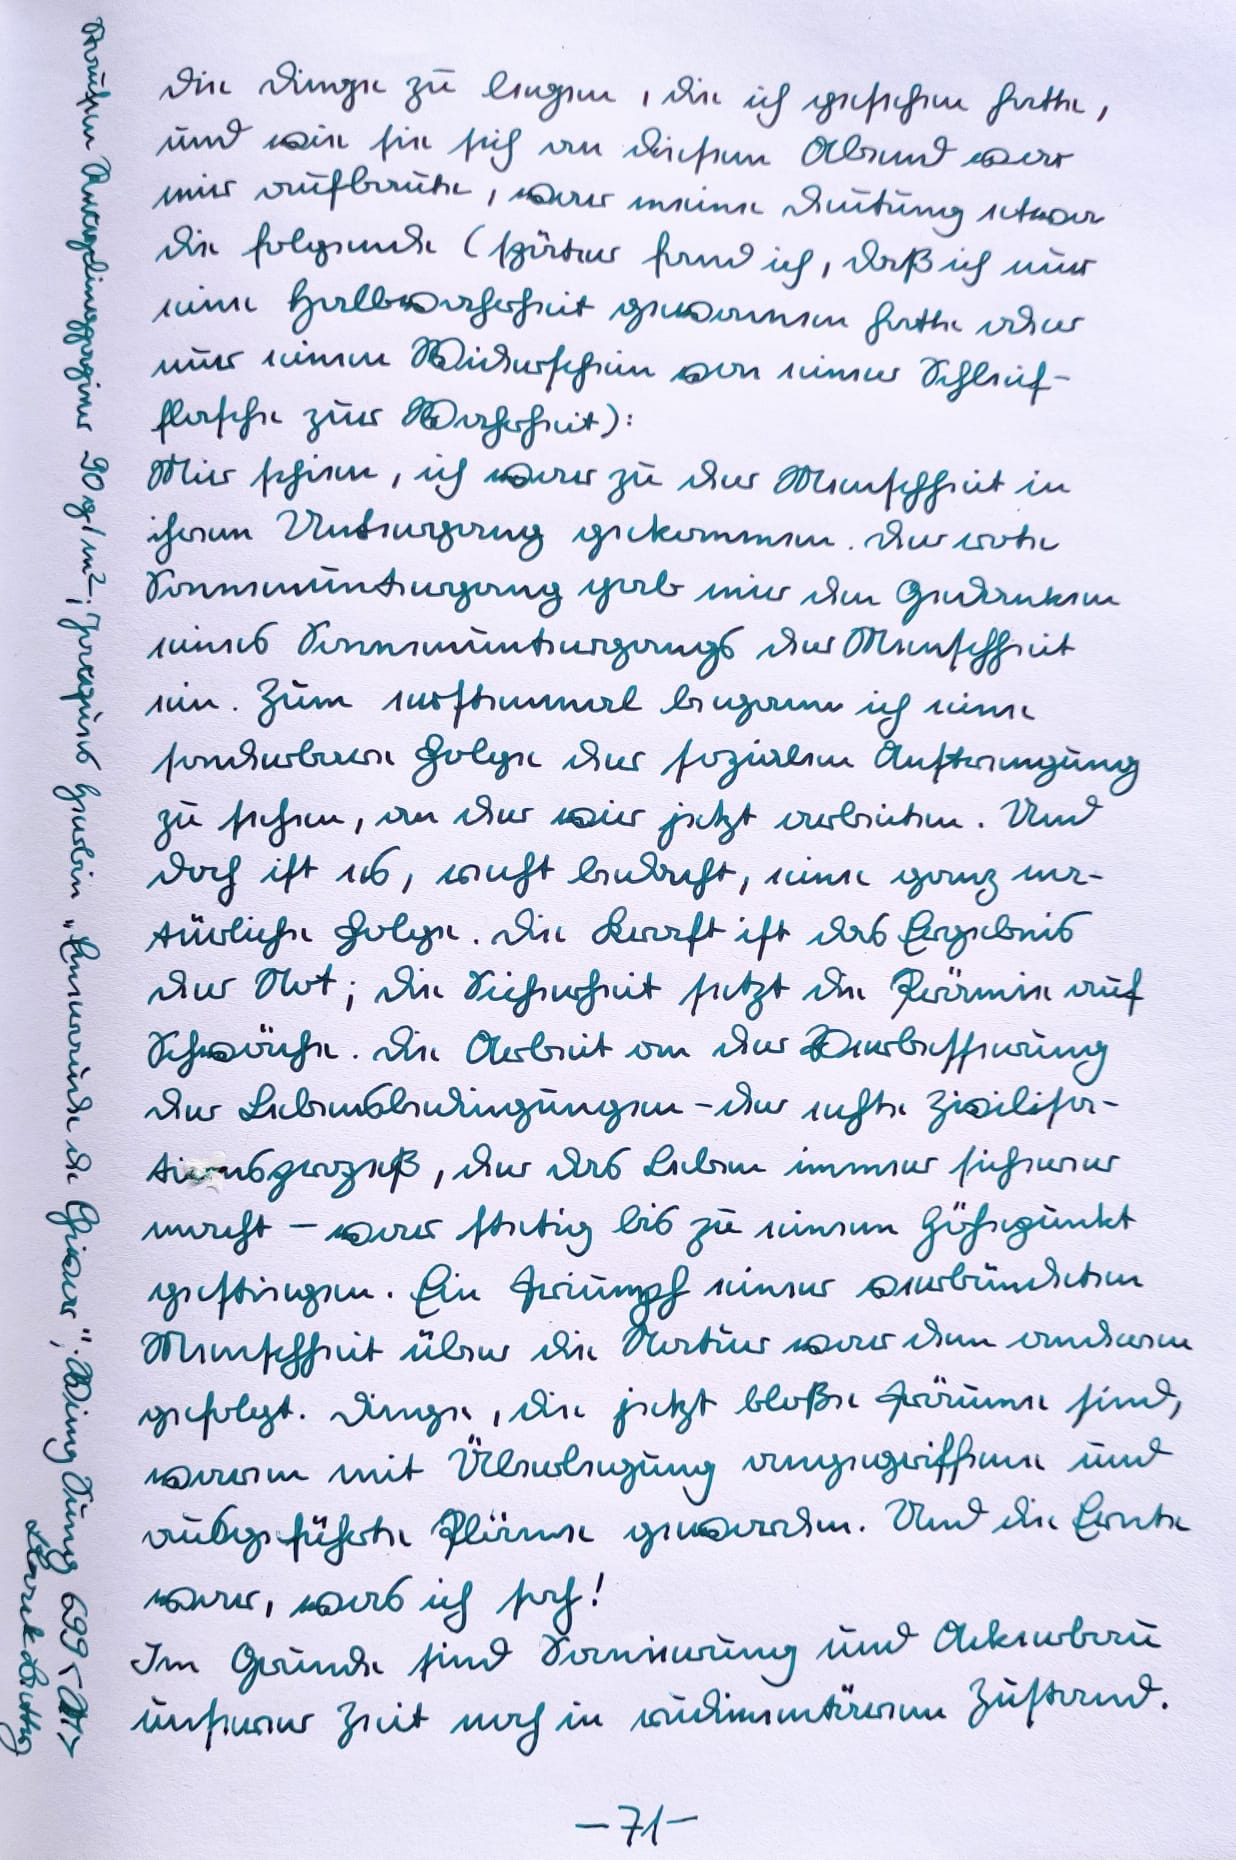 die Dinge zu legen, die ich gesehen hatte,
und wie sie sich an diesem Abend vor
mir aufbaute, war meine Deutung etwa
die folgende (später fand ich, daß ich nur
eine Halbwahrheit gewonnen hatte oder
nur einen Widerschein von einer Schleif-
fläche zur Wahrheit):
Mir schien, ich war zu der Menschheit in
ihrem Untergang gekommen. Der rote
Sonnenuntergang gab mir den Gedanken
eines Sonnenuntergangs der Menschheit
ein. Zum erstenmal begann ich eine
sonderbare Folge der sozialen Anstrengung
zu sehen, an der wir jetzt arbeiten. Und
doch ist es, recht bedacht, eine ganz na-
türliche Folge. Die Kraft ist das Ergebnis
der Not; die Sicherheit setzt die Prämie auf
Schwäche. Die Arbeit an der Verbesserung
der Lebensbedingungen – der echte Zivilisa-
tionsprozeß, der das Leben immer sicherer
macht – war stetig bis zu einem Höhepunkt
gestiegen. Ein Triumph einer verbündeten
Menschheit über die Natur war dem anderen
gefolgt. Dinge, die jetzt bloße Träume sind,
waren mit Überlegung angegriffene und
ausgeführte Pläne geworden. Und die Ernte
war, was ich sah!
Im Grunde sind Sanierung und Ackerbau
unserer Zeit noch in rudimentärem Zustand.
–71–
Staufen 90 g/m²; Jacques Herbin „Emeraude de Chivor“; Wing Sung 699